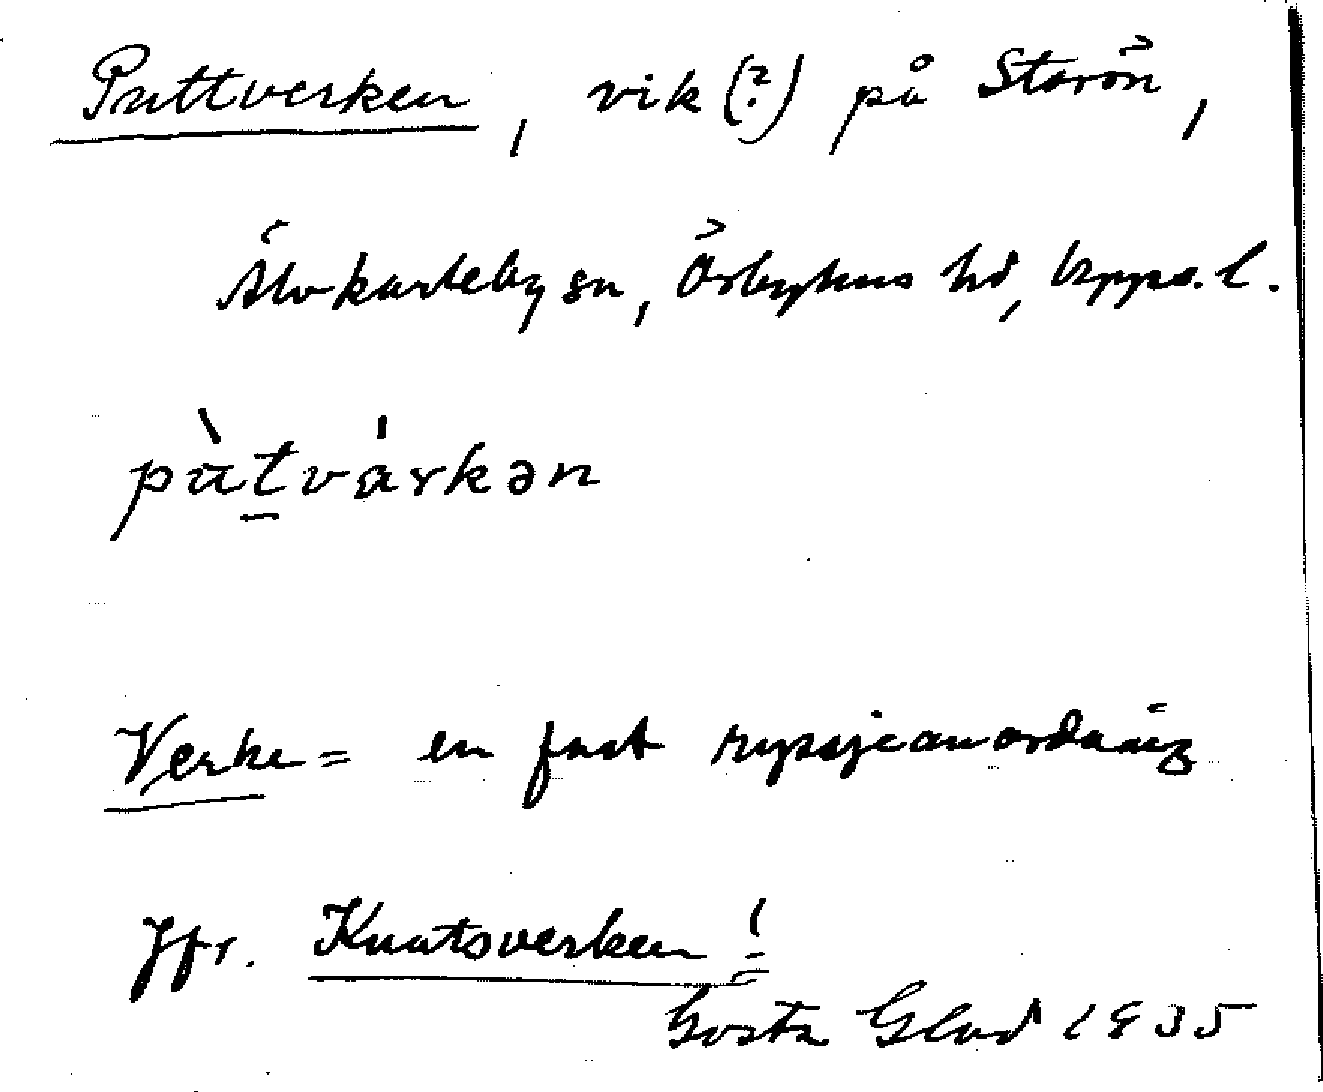 Puttverken, vik (?) på Storön,
Älvkarleby sn, Örbyhus hd, Upps. l.
pùt̠várkən
Verke = en fast ryssjeanordning
Jfr. Knutsverken!
Gösta Glad 1935